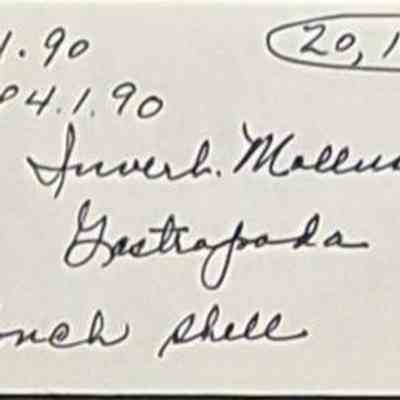 1.90 20,1
84.1.90
Inverb. Mollus
Gastrapoda
onch shell